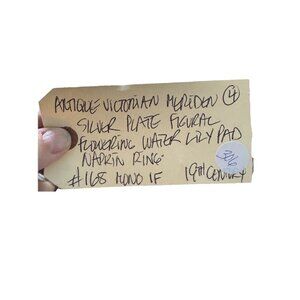 ANTIQUE VICTORIAN MERIDEN ④
SILVER PLATE FIGURAL
FLOWERING WATER LILY PAD
NAPKIN RING
#168 MONO IF 19TH CENTURY